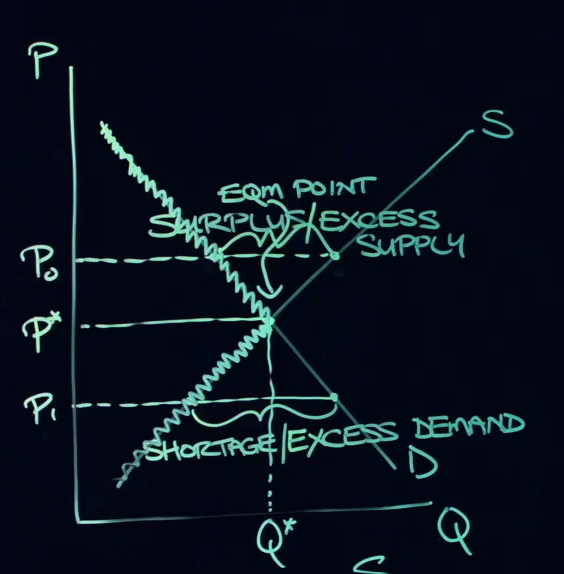 P
S
EQM POINT
SURPLUS/EXCESS
SUPPLY
P₀
P*
P₁
SHORTAGE/EXCESS DEMAND
D
Q*
Q